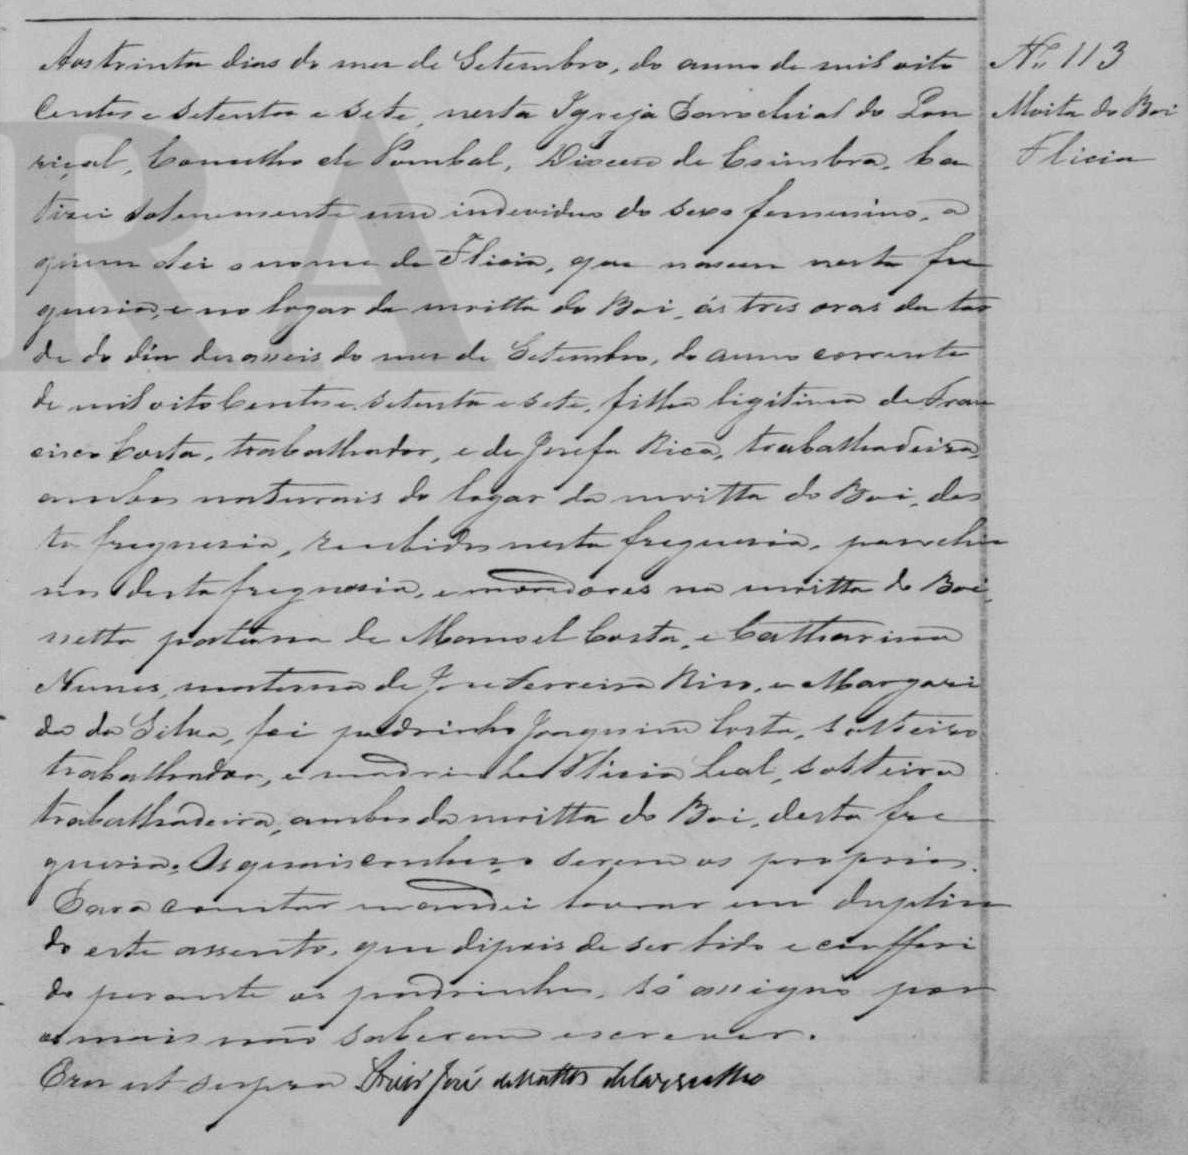 Aos trinta dias do mez de Setembro, do anno de mil oito
Centos e setenta e sete, nesta Igreja Parrochial do Lou
riçal, Concelho de Pombal, Diocese de Coimbra, ba
tizei solenemente um individuo do sexo femenino, a
quem dei o nome de Flicia, que nasceu nesta fre
guesia, e no logar da moitta do Boi, ás tres oras da tar
de do dia desasseis do mez de Setembro, do anno corrente
de mil oito Centos e setenta e sete, filha ligitima de Fran
cisco Costa, trabalhador, e de Josefa Rica, trabalhadeira,
ambos naturais do logar da moitta do Boi, des
ta freguesia, recebidos nesta freguesia, parochia
nos desta freguesia, e moradores na moitta do Boi,
netta paterna de Manoel Costa, e Catharina
Nunes, materna de Jose Ferreira Rico, e Margari
da da Silva, foi padrinho Joaquim Costa, solteiro
trabalhador, e madrinha Flicia Leal, solteira
trabalhadeira, ambos da moitta do Boi, desta fre
guesia, Os quais conheço serem os proprios.
Para constar mandei lavrar em duplica
do este assento, que dipois de ser lido e conferi
do perante os padrinhos, só assigno por
os mais não saberem escrever.
Era ut supra José de Mattos
RA
N.º 113
Moita do Boi
Flicia